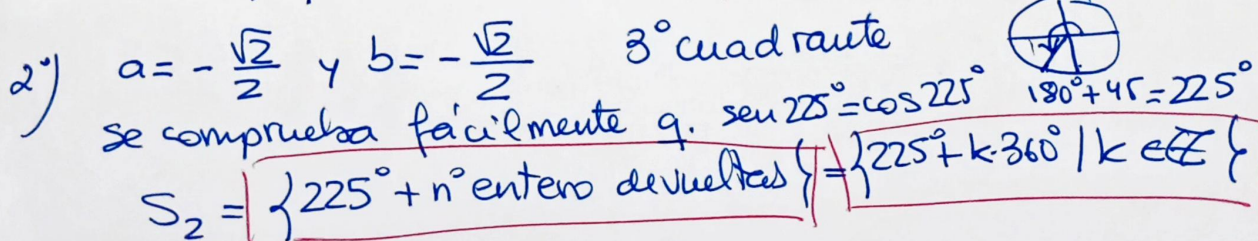 2º) a = - √2/2 y b = - √2/2 3º cuadrante
se comprueba fácilmente q. sen 225º = cos 225º 180º + 45 = 225º
S₂ = {225º + nº entero de vueltas} = {225º + k·360º | k ∈ ℤ}